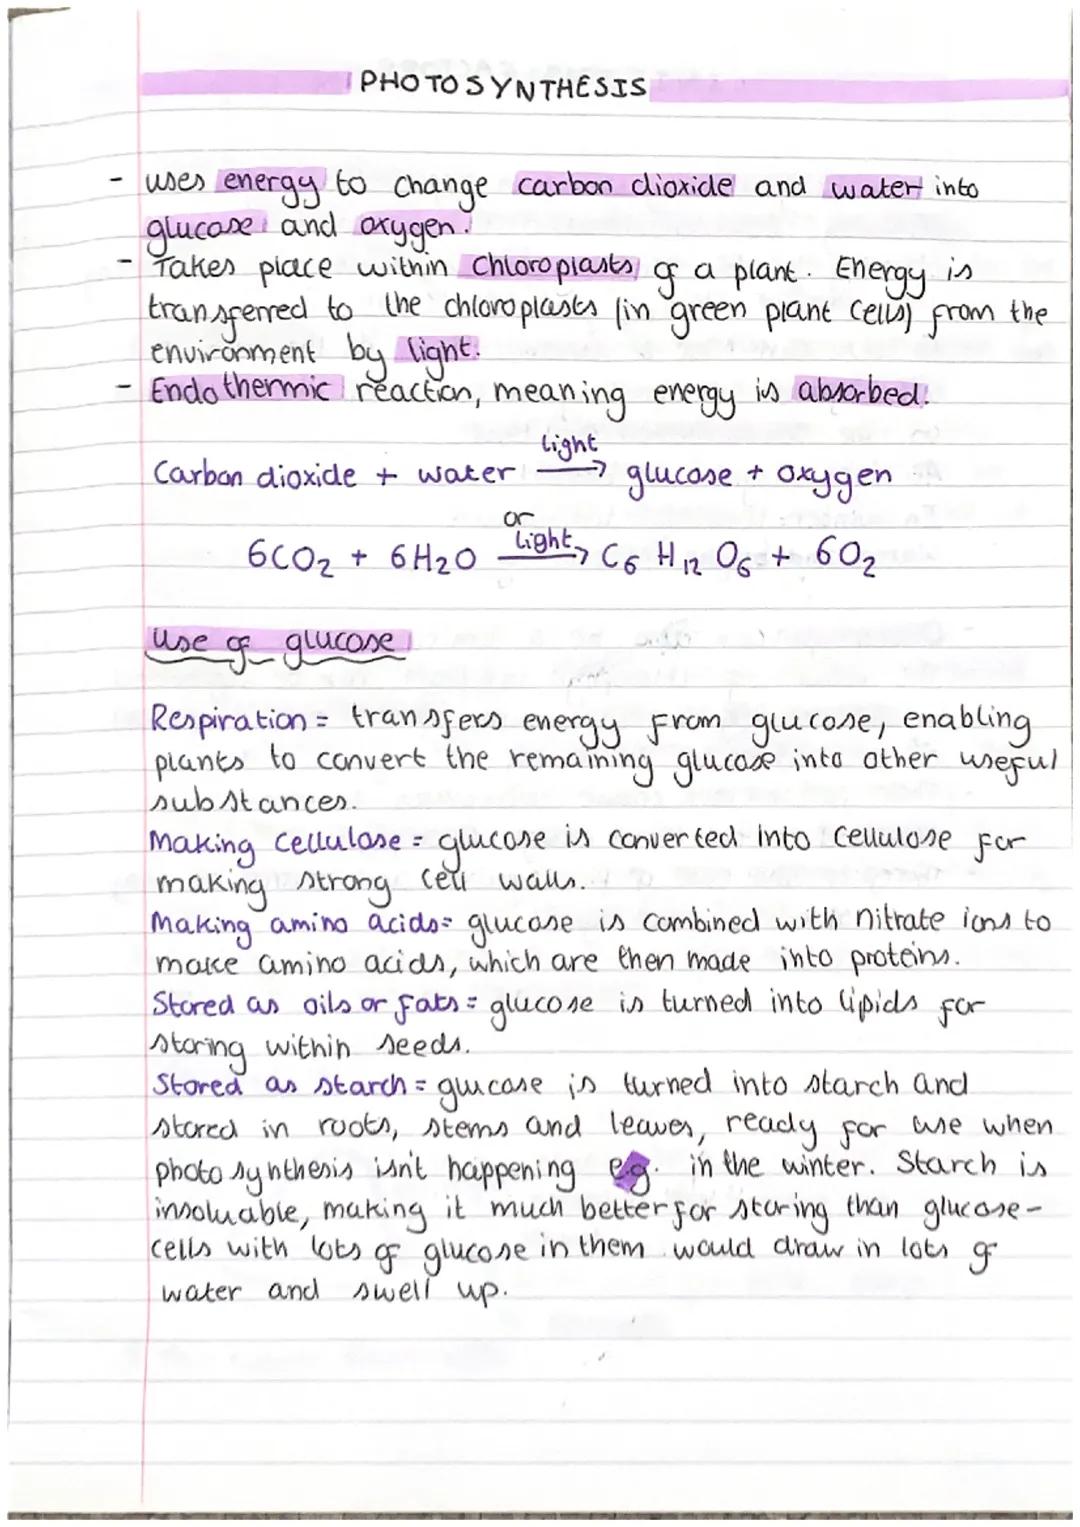 PHOTOSYNTHESIS
- uses energy to change carbon dioxide and water into
glucose and oxygen.
- Takes place within chloroplasts of a plant. Energy is
transferred to the chloroplasts (in green plant cells) from the
environment by light.
- Endothermic reaction, meaning energy is absorbed.
light
Carbon dioxide + water → glucose + oxygen
or
light
6CO₂ + 6H₂O → C₆H₁₂O₆ + 6O₂
use of glucose
Respiration = transfers energy from glucose, enabling
plants to convert the remaining glucose into other useful
substances.
Making cellulose = glucose is converted into cellulose for
making strong cell walls.
Making amino acids = glucose is combined with nitrate ions to
make amino acids, which are then made into proteins.
Stored as oils or fats = glucose is turned into lipids for
storing within seeds.
Stored as starch = glucose is turned into starch and
stored in roots, stems and leaves, ready for use when
photosynthesis isn't happening e.g. in the winter. Starch is
insoluable, making it much better for storing than glucose-
cells with lots of glucose in them would draw in lots of
water and swell up.